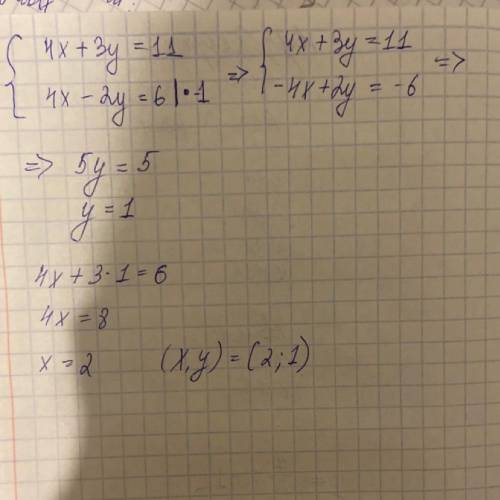 4x + 3y = 11
4x - 2y = 6 | • -1
=>
4x + 3y = 11
-4x + 2y = -6
=>
=> 5y = 5
y = 1
4x + 3·1 = 6
4x = 8
x = 2
(x, y) = (2; 1)